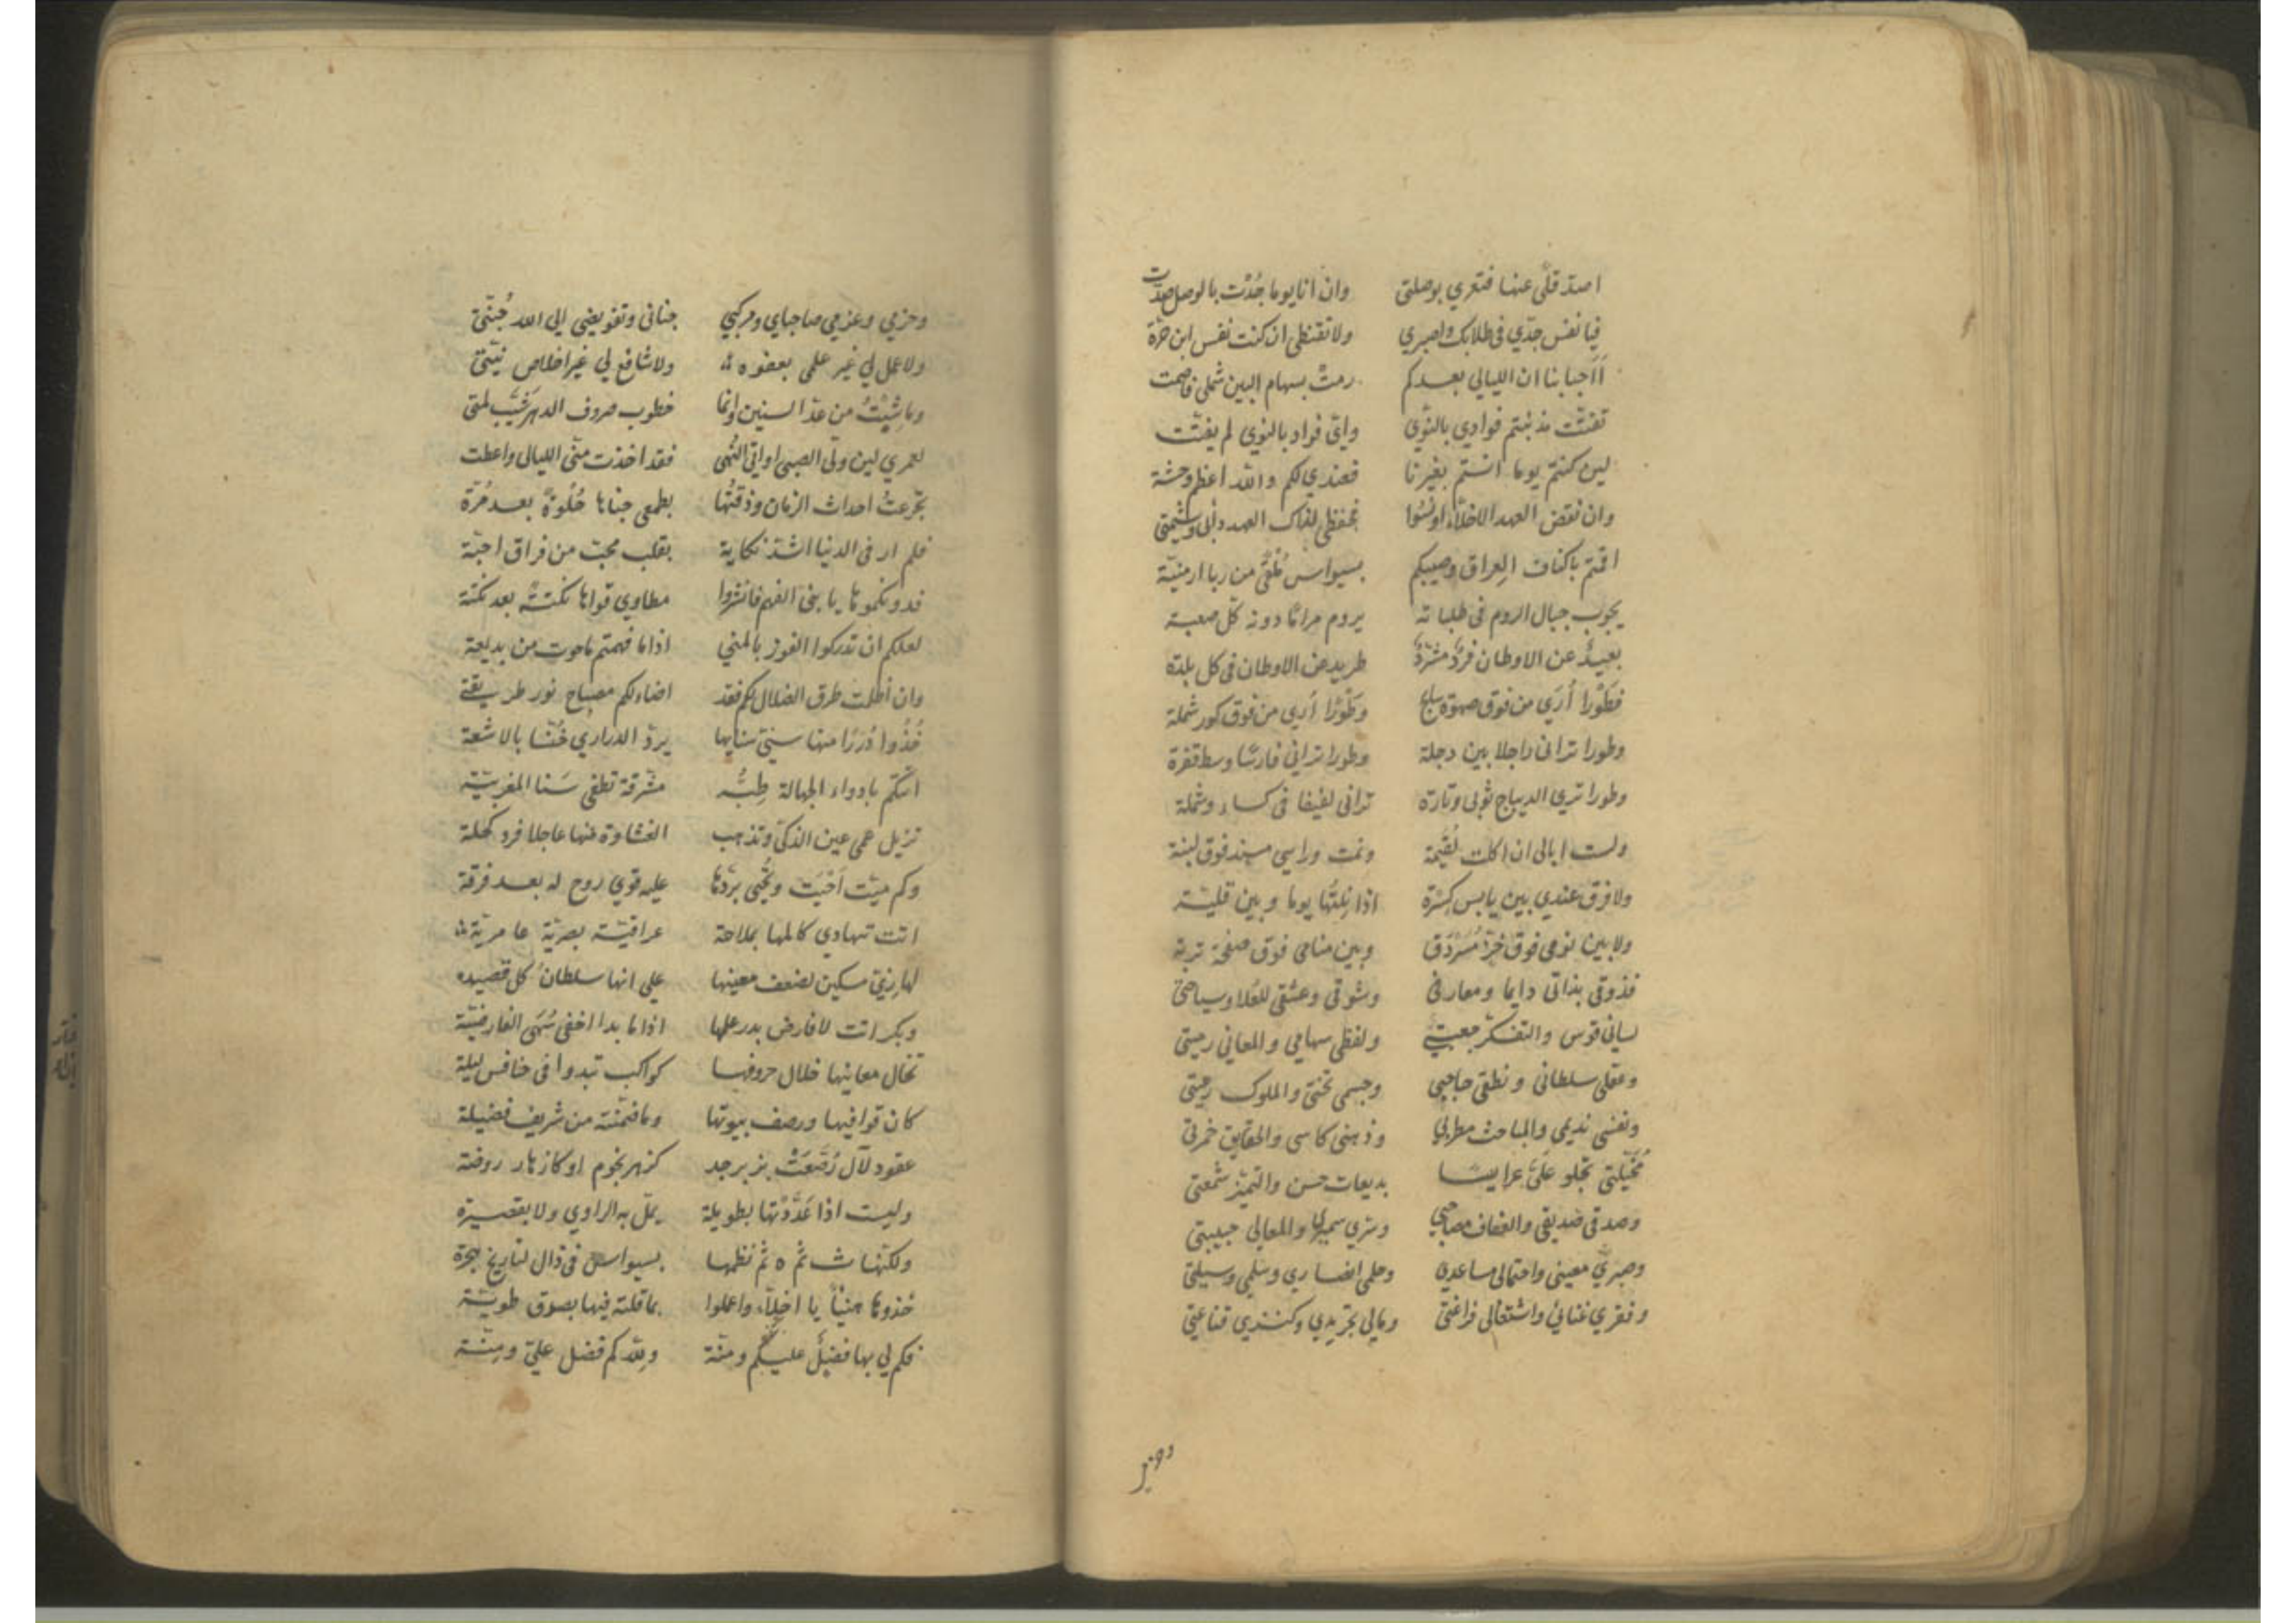 اصدّ قلًى عنها فتغري بوصلتي وان انا يوما جُدْت بالوصل صدّت
فيا نفس جدّي في طلابك واصبري ولا تقنطي ان كنت نفس ابن حرّة
أأحبابنا ان الليالي بعدكم رمتْ بسهام البين شملي فاصمت
تفتّت مذ بنتم فوادي بالنّوي وايّ فواد بالنوي لم يفتّت
لين كنتم يوما انستم بغيرنا فعندي لكم والله اعظم وحشة
وان نقض العهد الاخلّاء او نسُوا فحفظي لذاك العهد دأبي وشيمتي
اقمتم باكناف العِراق وصبّكم بسيواس مُلْقًى من ربا ارمنيّة
يجوب جبال الروم في طلباته يروم مرامًا دونه كلّ صعبة
بعيدٌ عن الاوطان فردٌ مشرّدٌ طريد عن الاوطان في كل بلدة
فطَوْرا أُرَي من فوق صهوة سابح وطَوْرًا أُري من فوق كور شملة
وطورا تراني راجلا بين دجلة وطورا تراني فارسًا وسط قفرة
وطورا تري الديباج ثوبي وتارة تراني لفيفا في كساء وشملة
ولست ابالي ان اكلت لُقَيْمة ونمت وراسي مسند فوق لبنة
ولا فرق عندي بين يابس كِسْرة اذا نِلتُها يوما وبين قليّتة
ولا بين نومي فوق خزّ مُسَرْدَق وبين منامي فوق صفحة تربة
فذوقي بذاتي دايما ومعارفي وشوقي وعشقي للعُلا وسياحتي
لساني قوس والتفكّر جعبتي ولفظي سهامي والمعاني رميتي
وعقلي سلطاني ونطقي حاجبي وجسمي تختي والملوك رعيّتي
ونفسي نديمي والمباحث مطربي وذهني كاسي والحقايق خمرتي
مُخَيّلتي تجلو عَلَيَّ عرايسًا بديعات حسن والتميّز شمعتي
وصدقي صديقي والعفاف مصاحبي وسري سميري والمعالي حبيبتي
وصبريْ معيني واحتمالي مساعدي وحلمي انصاري وسلمي وسيلتي
وفقري غنائي واشتغالي فراغتي ومالي تجريدي وكنزي قناعتي
وحزمي
وحزمي وعزمي صاحباي ومركبي جناني وتفويضي الي الله جُنّتي
ولا عمل لي غير علمي بعفوه ولا شافع لي غير اخلاص نيّتي
وما شِبْتُ من عدّ السنين وانما خطوب صروف الدهر شَيَّبَ لمتي
لعمري لين ولّى الصبى او اتي النُّهى فقد اخذت منّي الليالي واعطت
تجرعتُ احداث الزمان وذقتُها بطعمي جناها حُلوةً بعد مُرّة
فلم ار في الدنيا اشدّ نكاية بقلب محبّ من فراق احبّة
فدونكموها يا بني الفهم فانشروا مطاوي قواها نكتة بعد نكتة
لعلكم ان تدركوا الفوز بالمني اذا ما فهمتم ما حوت من بديعة
وان أظلمت طرق الضلال لكم فقد اضاء لكم مصباح نور طريقة
خُذُوا دُرَرًا منها سنيّ سنايها يردّ الدراري خُنّسًا بالاشعة
اتتكم بادواء الجهالة طِبُّه مشرقة تطفي سَنا المغربيّة
تزيل عمي عين الذكيّ وتذهب الغشاوة عنها عاجلا فرد كحلة
وكم ميّت أحْيَت وتُحْيي بردّها عليه قوي روح له بعد فرقة
اتت تهادي كالمها بملاحة عراقيّة بصريّة عامريّة
لها زيّ مسكين لضعف معينها علي انها سلطانُ كل قصيده
وبكر اتت لا فارض بدر علمها اذا ما بدا اخفى سُهَى الفارضيّة
تخال معانيها خلال حروفها كواكب تبدوا في حنادس ليلة
كان قوافيها ورصف بيوتها وما ضمّنته من شريف فضيلة
عقود لآل رُصّعَتْ بزبرجد كزهر نجوم او كازهار روضة
وليست اذا عَدَّدْتها بطويلة يملّ بها الراوي ولا بقصيرة
ولكنها ش ثم ه ثم نظمها بسيواس في ذال لتاريخ هجرة
خذوها هنيئًا يا اخلّاء واعملوا بما قلته فيها بصدق طويّة
فكم لي بها فضلٌ عليكم ومنّة ولله كم فضل عليّ ومِنّة